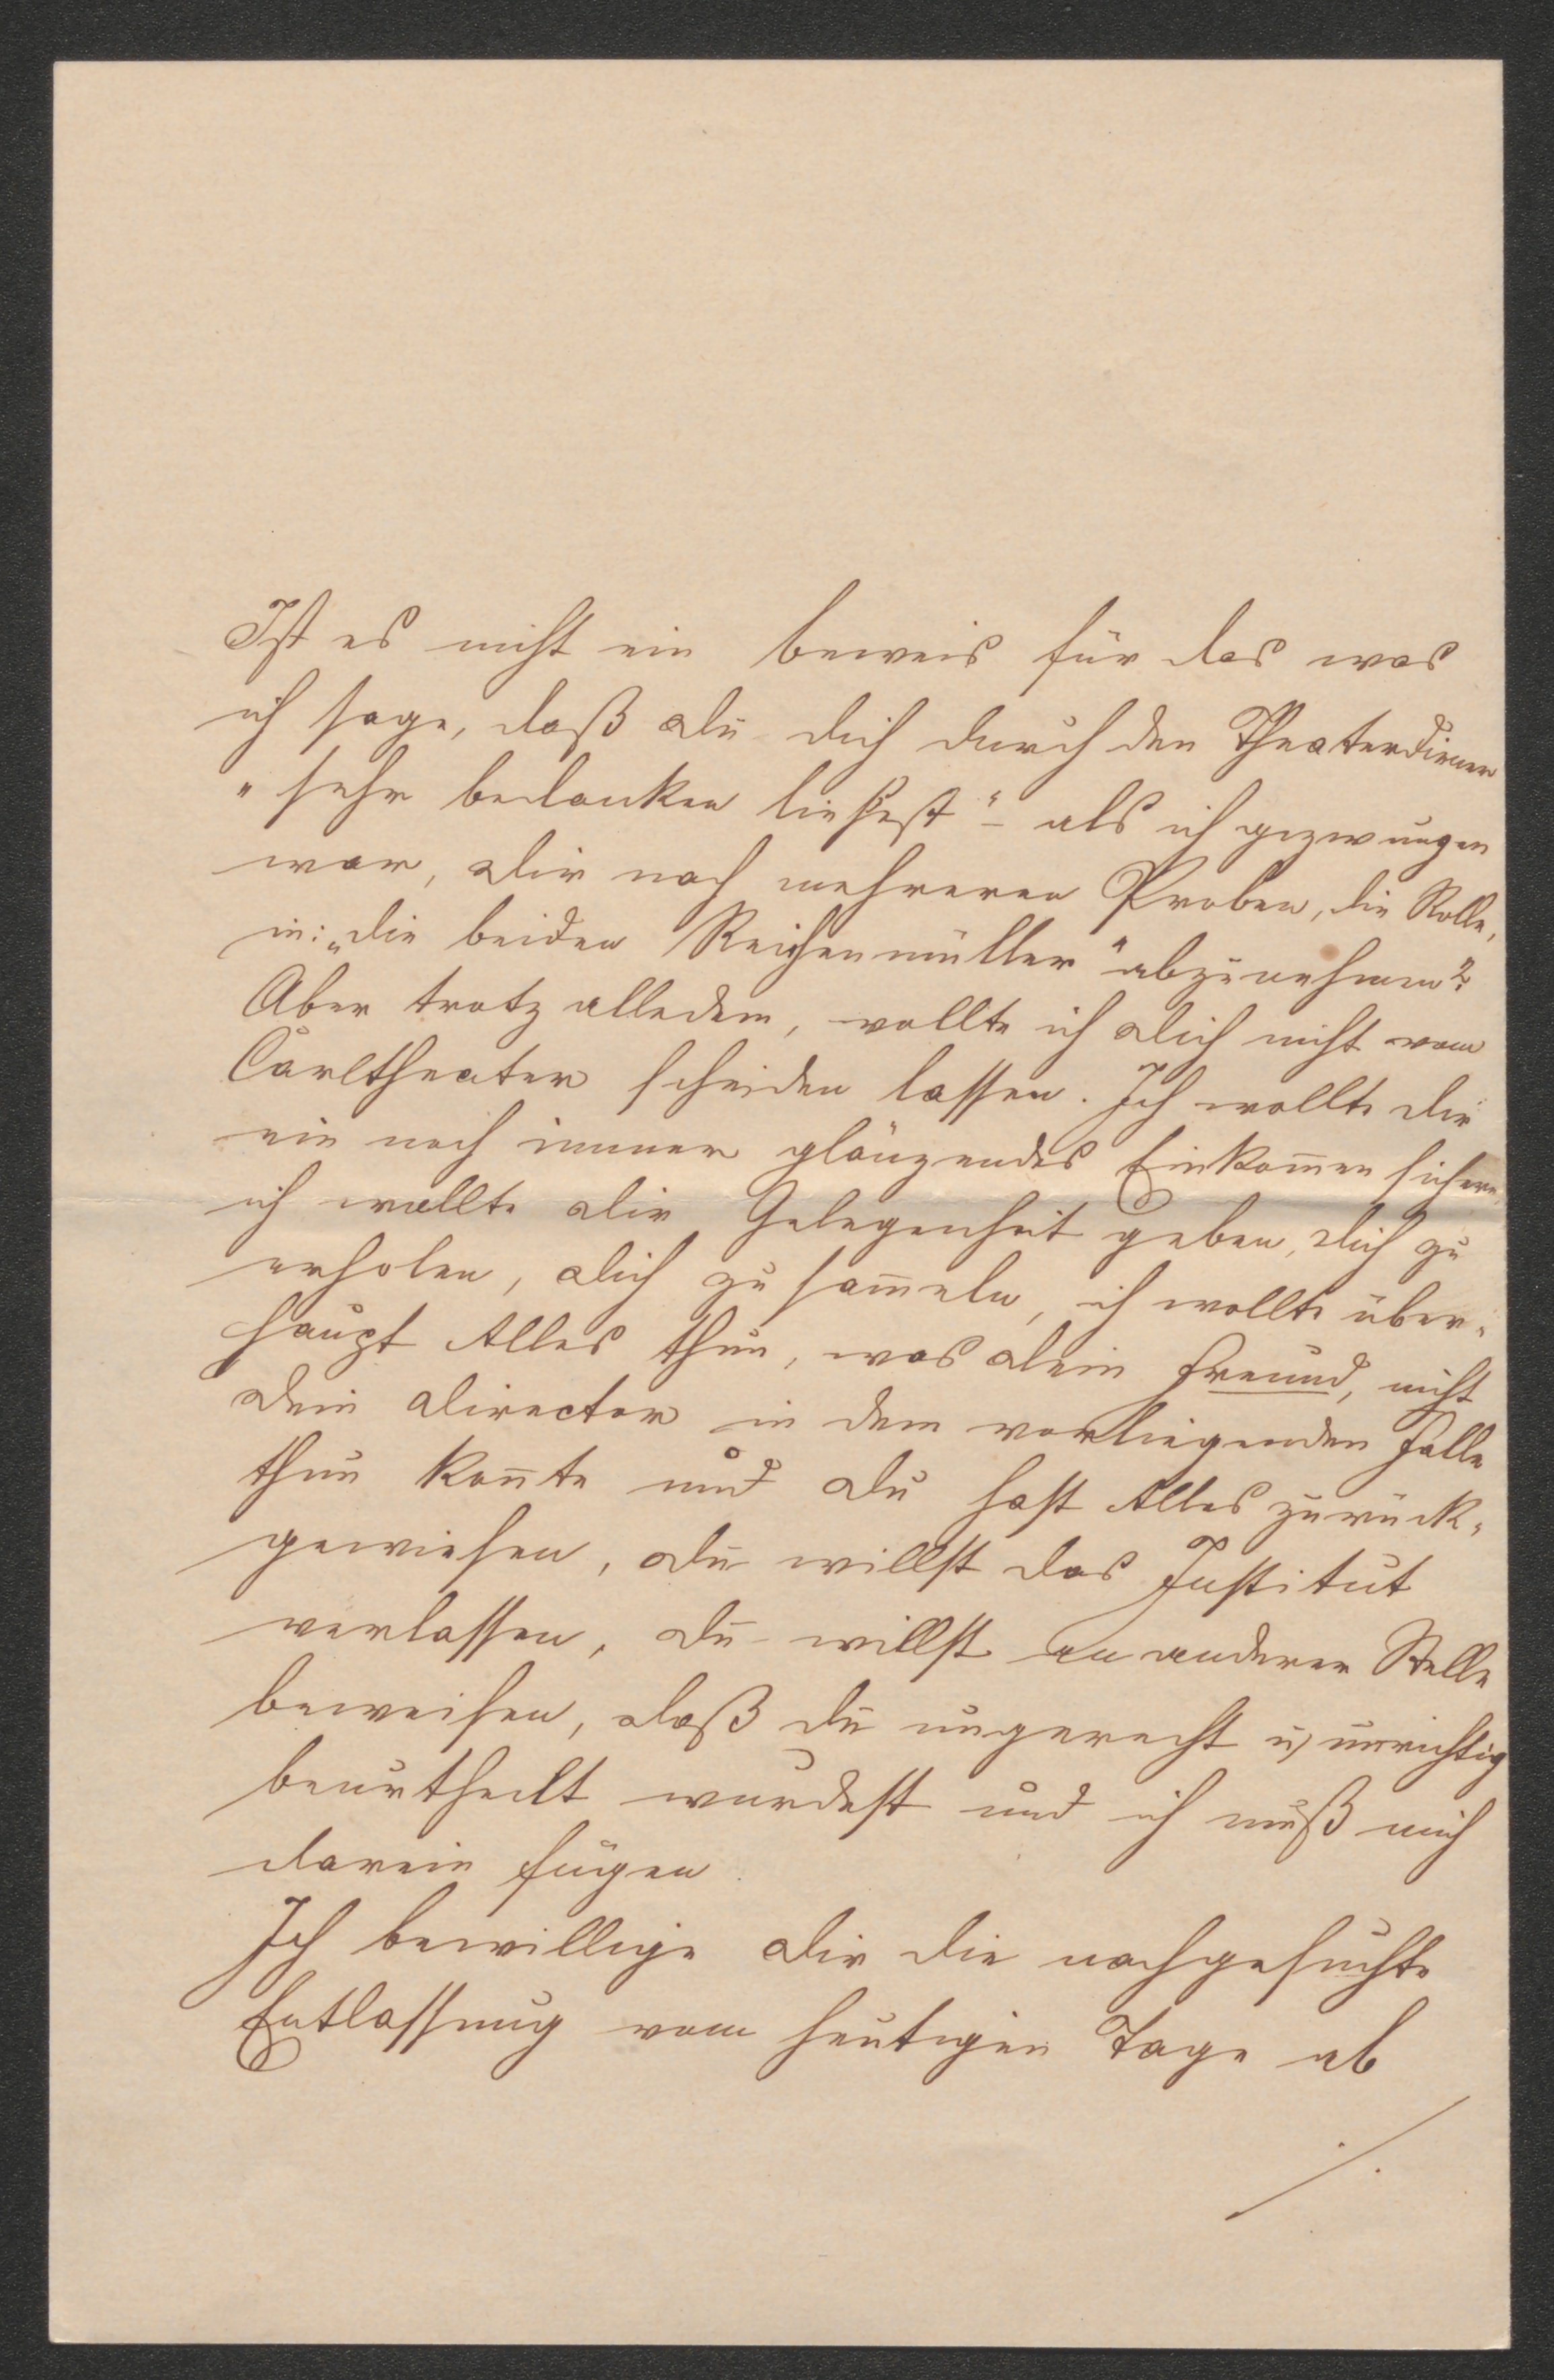 Ist es nicht ein Beweis für das was
ich sage, daß Du Dich durch den Theaterdiener
"sehr bedanken ließest" – als ich gezwungen
war, Dir nach mehreren Proben, die Rolle,
in: „die beiden Reichenmüller" abzunehmen?
Aber trotz alledem, wollte ich Dich nicht vom
Carltheater scheiden lassen. Ich wollte Dir
ein noch immer glänzendes Einkom̄en sichern,
ich wollte Dir Gelegenheit geben, Dich zu
erholen, Dich zu sam̄eln, ich wollte über-
haupt Alles thun, was Dein Freund, nicht
Dein Director in dem vorliegenden Falle
thun kon̄te und Du hast Alles zurück-
gewiesen, Du willst das Institut
verlassen, Du willst an anderer Stelle
beweisen, daß Du ungerecht u, unrichtig
beurtheilt wurdest und ich muß mich
darein fügen.
Ich bewillige Dir die nachgesuchte
Entlassung vom heutigen Tage ab
./.